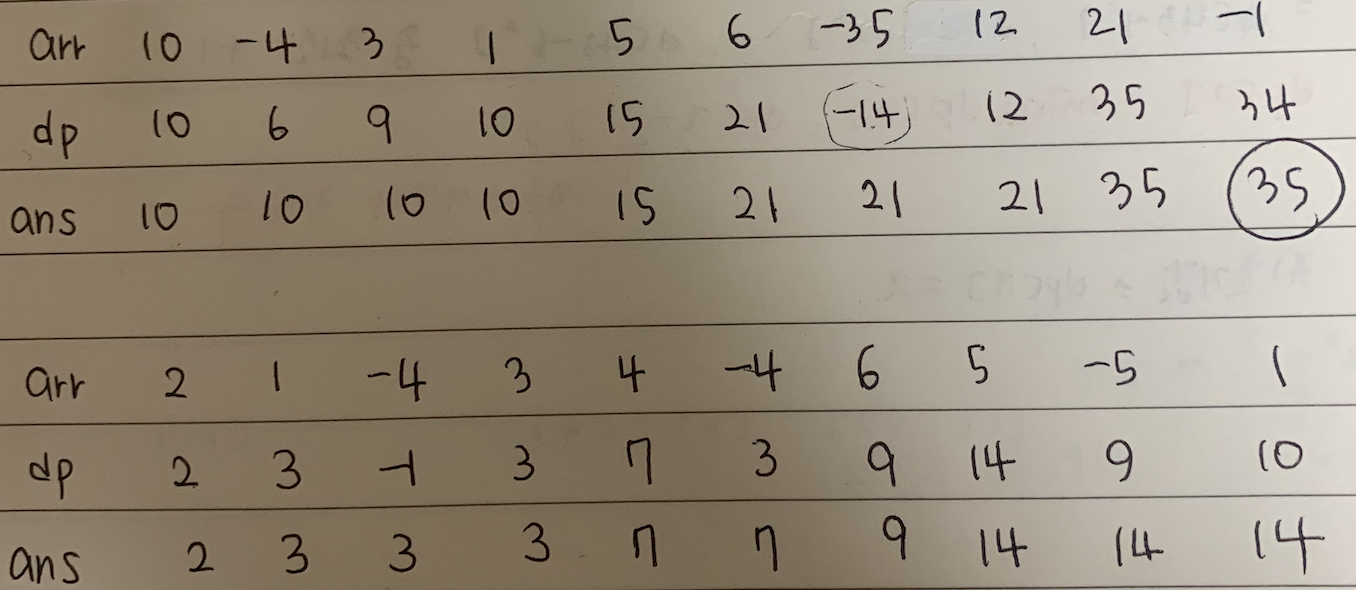 arr 10 -4 3 1 5 6 -35 12 21 -1
dp 10 6 9 10 15 21 -14 12 35 34
ans 10 10 10 10 15 21 21 21 35 35
arr 2 1 -4 3 4 -4 6 5 -5 1
dp 2 3 -1 3 7 3 9 14 9 10
ans 2 3 3 3 7 7 9 14 14 14